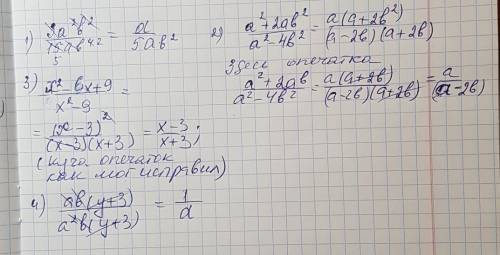 1) 3a²b² / 15ab⁴·² = a / 5ab² 2) a²+2ab² / a²-4b² = a(a+2b²) / (a-2b)(a+2b)
5
Здесь опечатка
a²+2ab / a²-4b² = a(a+2b) / (a-2b)(a+2b) = a / (a-2b)
3) x²-6x+9 / x²-9 =
= (x-3)² / (x-3)(x+3) = x-3 / x+3;
(куча опечаток
как мог исправил)
4) ab(y+3) / a²b(y+3) = 1 / a